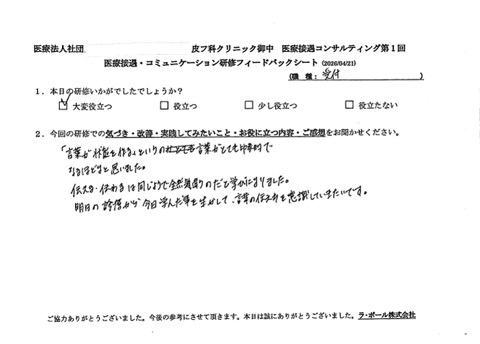 医療法人社団 皮フ科クリニック御中 医療接遇コンサルティング第1回
医療接遇・コミュニケーション研修フィードバックシート (2026/04/21)
(職 種：受付 )
1．本日の研修いかがでしたでしょうか？
☑ 大変役立つ □ 役立つ □ 少し役立つ □ 役立たない
2．今回の研修での気づき・改善・実践してみたいこと・お役に立つ内容・ご感想をお聞かせください。
「言葉が状態を作る」というの 言葉がとても印象的で
なるほどなと思いました。
伝える・伝わるは同じようで全然違うのだと学びになりました。
明日の診療から今日学んだ事を生かして、言葉の伝え方を意識していきたいです。
ご協力ありがとうございました。今後の参考にさせて頂きます。本日は誠にありがとうございました。ラ・ポール株式会社